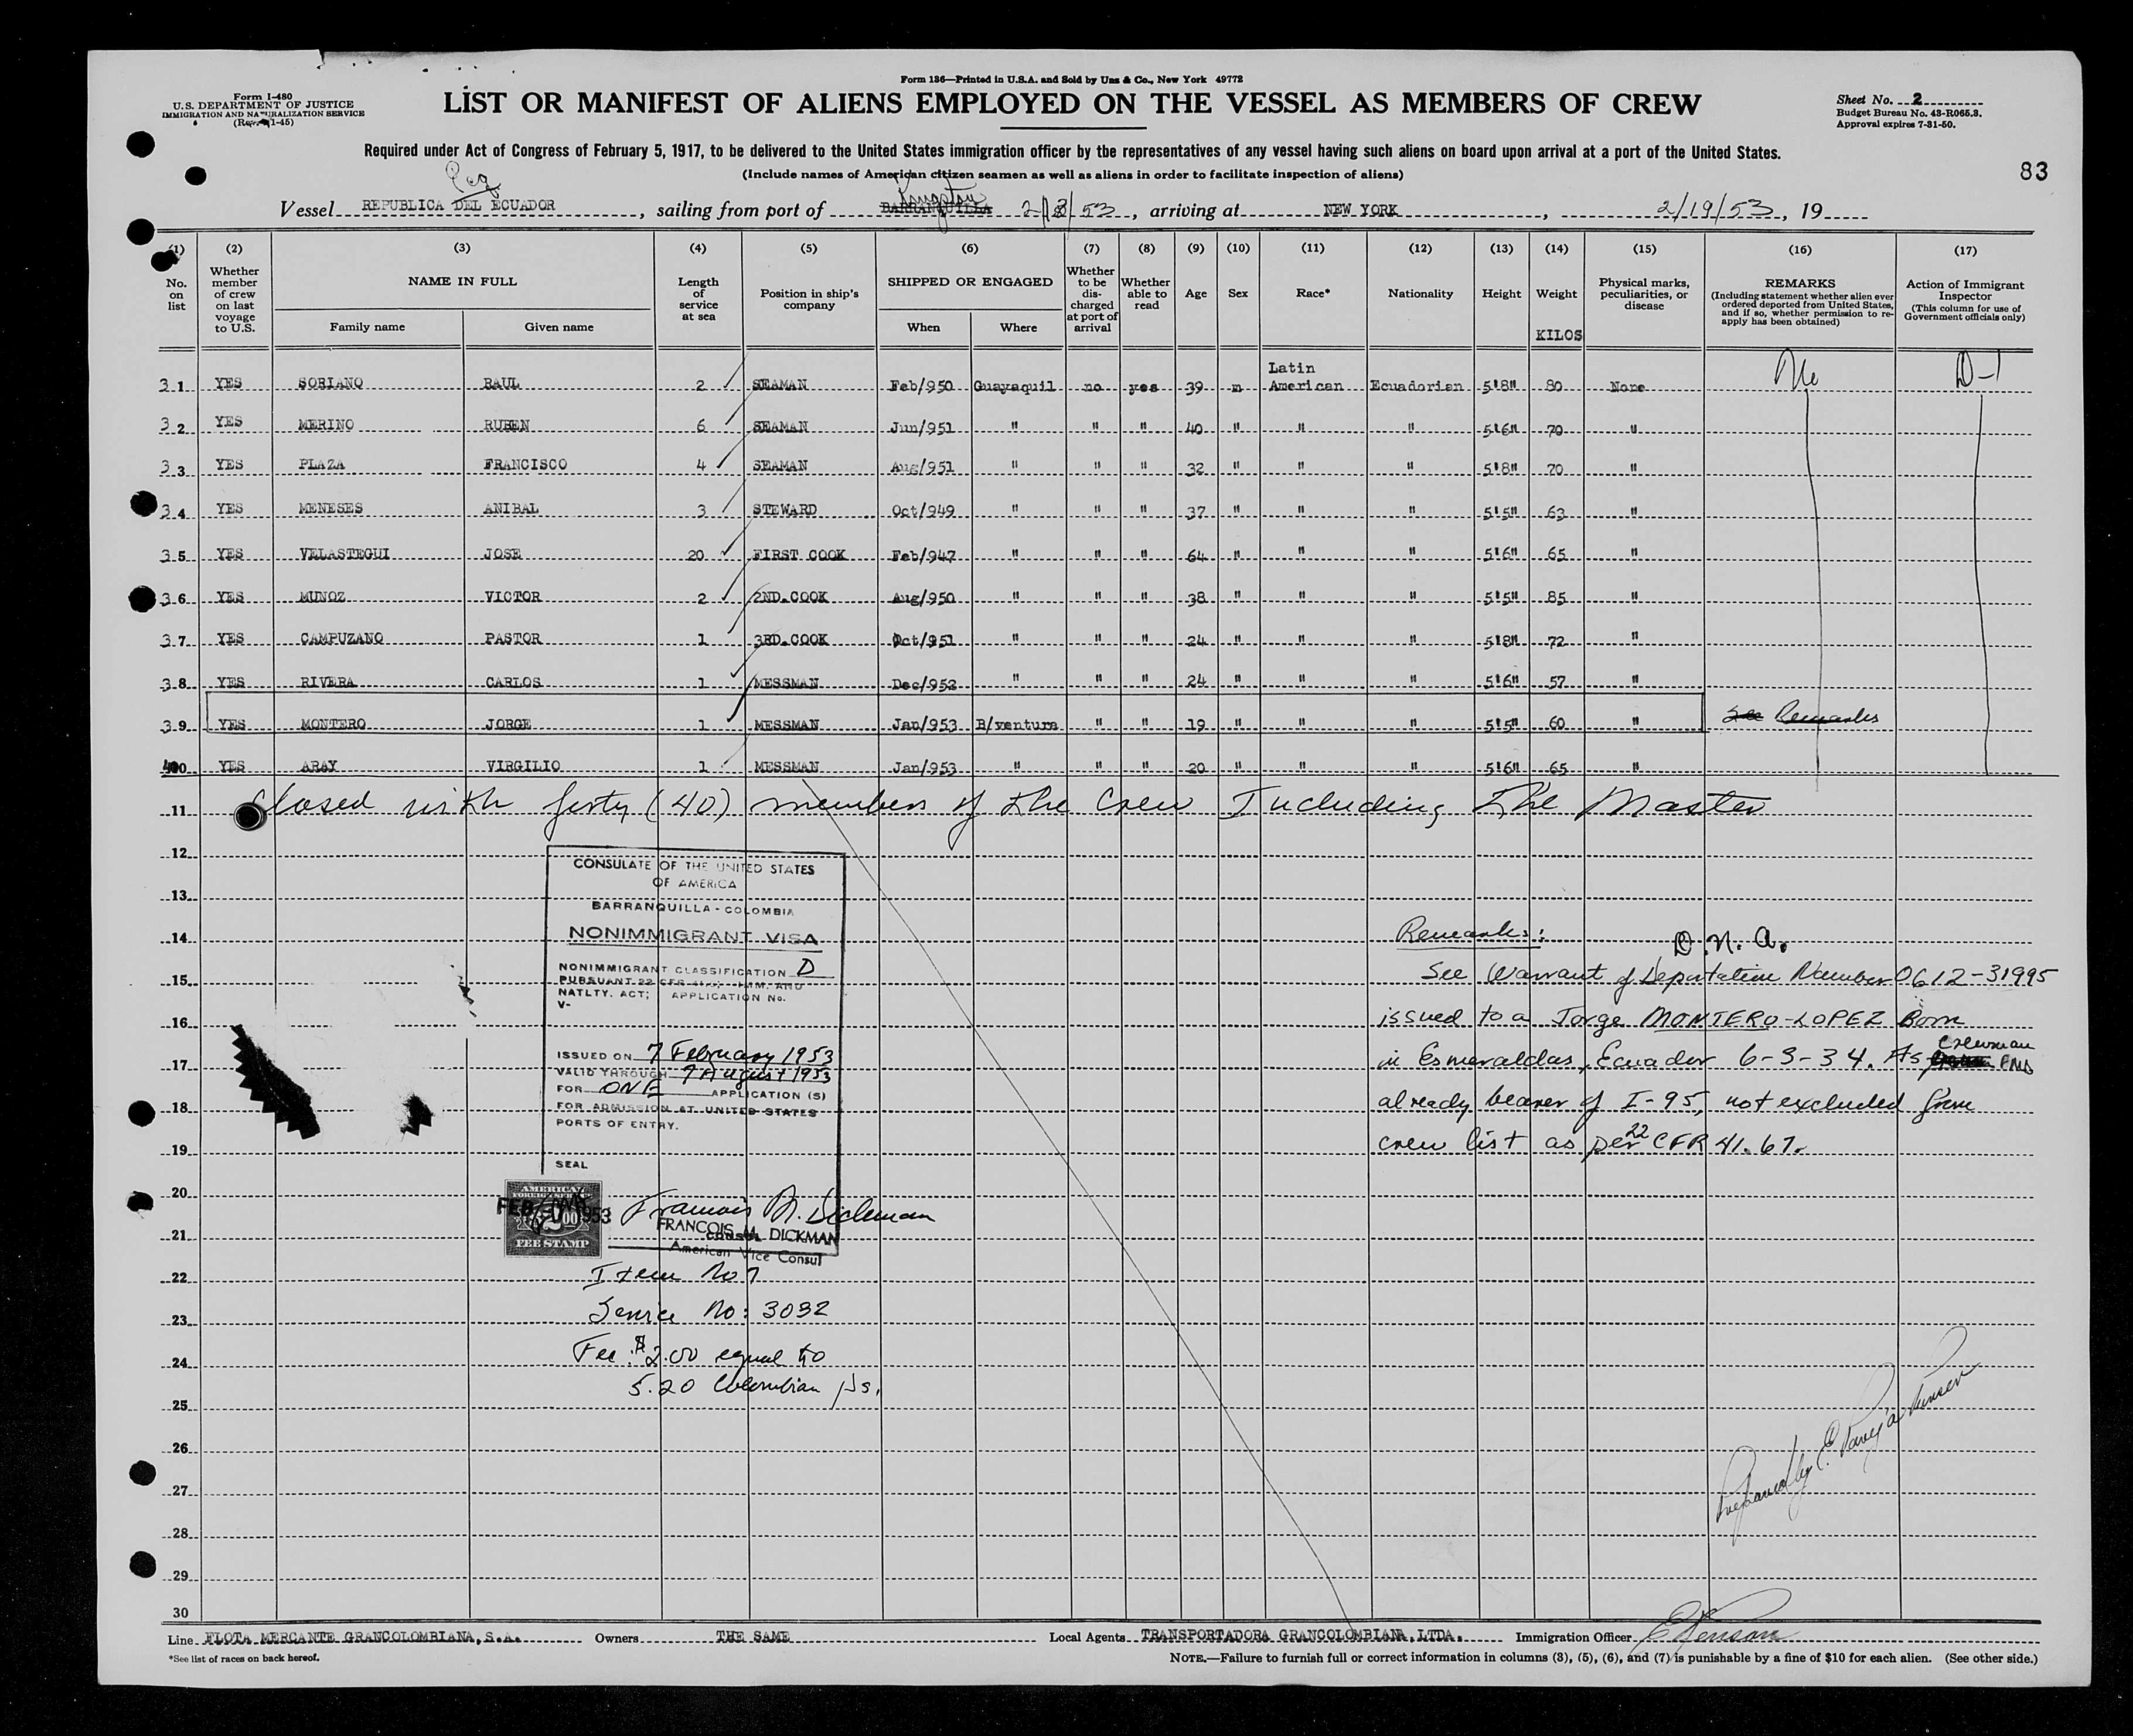 Form 136—Printed in U.S.A. and Sold by Unz & Co., New York 49772
Form I-480
U.S. DEPARTMENT OF JUSTICE
IMMIGRATION AND NATURALIZATION SERVICE
LIST OR MANIFEST OF ALIENS EMPLOYED ON THE VESSEL AS MEMBERS OF CREW
Sheet No. 2
Budget Bureau No. 43-R065.3.
Approval expires 7-31-50.
Required under Act of Congress of February 5, 1917, to be delivered to the United States immigration officer by the representatives of any vessel having such aliens on board upon arrival at a port of the United States.
(Include names of American citizen seamen as well as aliens in order to facilitate inspection of aliens)
83
Vessel REPUBLICA DEL ECUADOR, sailing from port of BARRANQUILLA Kingston 2/13/53, arriving at NEW YORK, 2/19/53, 19
(1) (2) (3) (4) (5) (6) (7) (8) (9) (10) (11) (12) (13) (14) (15) (16) (17)
No. on list
Whether member of crew on last voyage to U.S.
NAME IN FULL
Family name
Given name
Length of service at sea
Position in ship's company
SHIPPED OR ENGAGED
When
Where
Whether to be discharged at port of arrival
Whether able to read
Age
Sex
Race*
Nationality
Height
Weight
KILOS
Physical marks, peculiarities, or disease
REMARKS
(Including statement whether alien ever ordered deported from United States, and if so, whether permission to re-apply has been obtained)
Action of Immigrant Inspector
(This column for use of Government officials only)
31 YES SORIANO RAUL 2 SEAMAN Feb/950 Guayaquil no yes 39 m Latin American Ecuadorian 5'8" 80 None D-1
32 YES MERINO RUBEN 6 SEAMAN Jun/951 " " " 40 " " " 5'6" 70 "
33 YES PLAZA FRANCISCO 4 SEAMAN Aug/951 " " " 32 " " " 5'8" 70 "
34 YES MENESES ANIBAL 3 STEWARD Oct/949 " " " 37 " " " 5'5" 63 "
35 YES VELASTEGUI JOSE 20 FIRST COOK Feb/947 " " " 64 " " " 5'6" 65 "
36 YES MUNOZ VICTOR 2 2ND.COOK Aug/950 " " " 38 " " " 5'5" 85 "
37 YES CAMPUZANO PASTOR 1 3RD.COOK Oct/951 " " " 24 " " " 5'8" 72 "
38 YES RIVERA CARLOS 1 MESSMAN Dec/952 " " " 24 " " " 5'6" 57 "
39 YES MONTERO JORGE 1 MESSMAN Jan/953 B/ventura " " 19 " " " 5'5" 60 " See Remarks
40 YES ARAY VIRGILIO 1 MESSMAN Jan/953 " " " 20 " " " 5'6" 65 "
11 Closed with forty (40) members of the Crew Including The Master
12
13
14
15
16
17
18
19
20
21
22
23
24
25
26
27
28
29
30
CONSULATE OF THE UNITED STATES
OF AMERICA
BARRANQUILLA - COLOMBIA
NONIMMIGRANT VISA
NONIMMIGRANT CLASSIFICATION D
PURSUANT 22 CFR IMM. AND
NATLTY. ACT; APPLICATION No.
V-
ISSUED ON 7 February 1953
VALID THROUGH 7 August 1953
FOR ONE APPLICATION (S)
FOR ADMISSION AT UNITED STATES
PORTS OF ENTRY.
SEAL
AMERICAN
FOREIGN SERVICE
FEE STAMP
FEB 1953
Francois M. Dickman
FRANCOIS M. DICKMAN
American Vice Consul
Item No 7
Service No: 3032
Fee: $2.00 equal to
5.20 Colombian
Remarks: D.N.A.
See Warrant of Deportation Number 0612-31995
issued to a Jorge MONTERO-LOPEZ Born
in Esmeraldas, Ecuador 6-3-34. As crewman FMD
already bearer of I-95, not excluded from
crew list as per 22 CFR 41.67.
Prepared by
Line FLOTA MERCANTE GRANCOLOMBIANA, S.A. Owners THE SAME Local Agents TRANSPORTADORA GRANCOLOMBIANA, LTDA. Immigration Officer
*See list of races on back hereof.
NOTE.—Failure to furnish full or correct information in columns (3), (5), (6), and (7) is punishable by a fine of $10 for each alien. (See other side.)